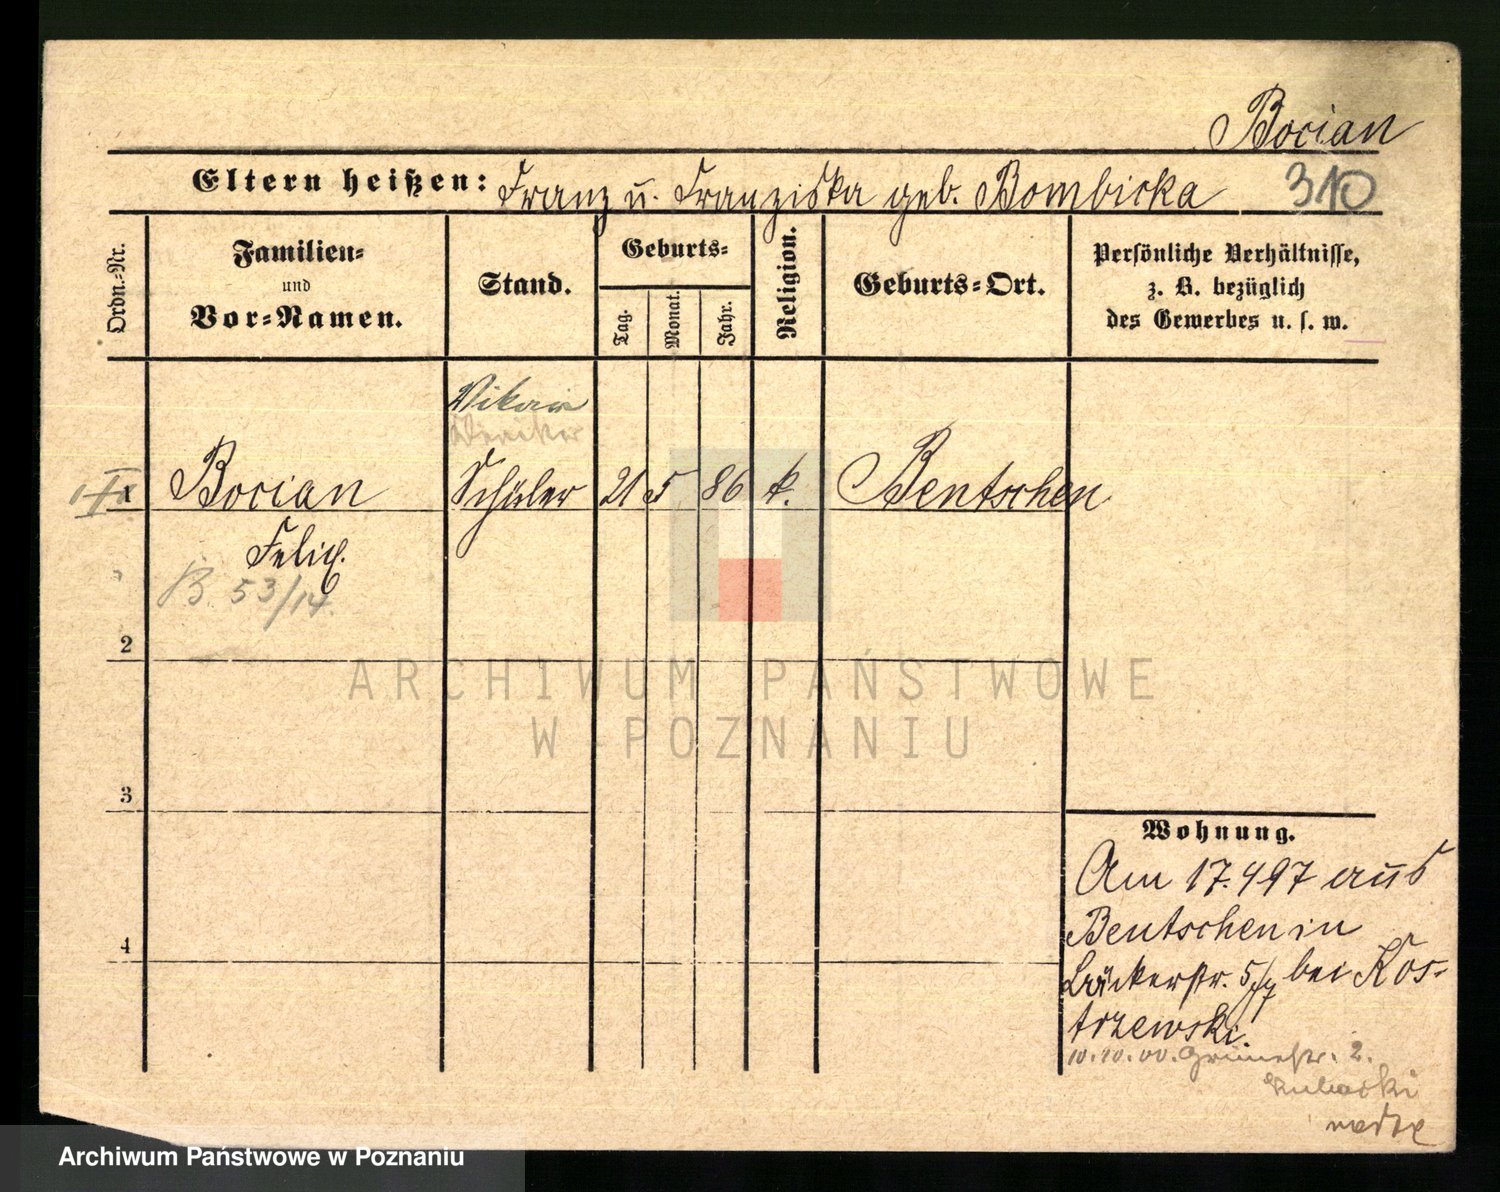 Bocian
Eltern heißen: Franz u. Franziska geb. Bombicka 310
Ordn.-Nr.
Familien-
und
Vor-Namen.
Stand.
Geburts-
Tag.
Monat.
Jahr.
Religion.
Geburts-Ort.
Persönliche Verhältnisse,
z. B. bezüglich
des Gewerbes u. s. w.
Vikar
1 Bocian Schüler 21 5 86 k. Bentschen
Felix.
B 53/14.
2
ARCHIWUM PAŃSTWOWE
W POZNANIU
3
Wohnung.
Am 17.4 97 aus
Bentschen in
Bäckerstr. 5/7 bei Kos-
trzewski.
4
10.10.00. Grünestr. 2.
Archiwum Państwowe w Poznaniu